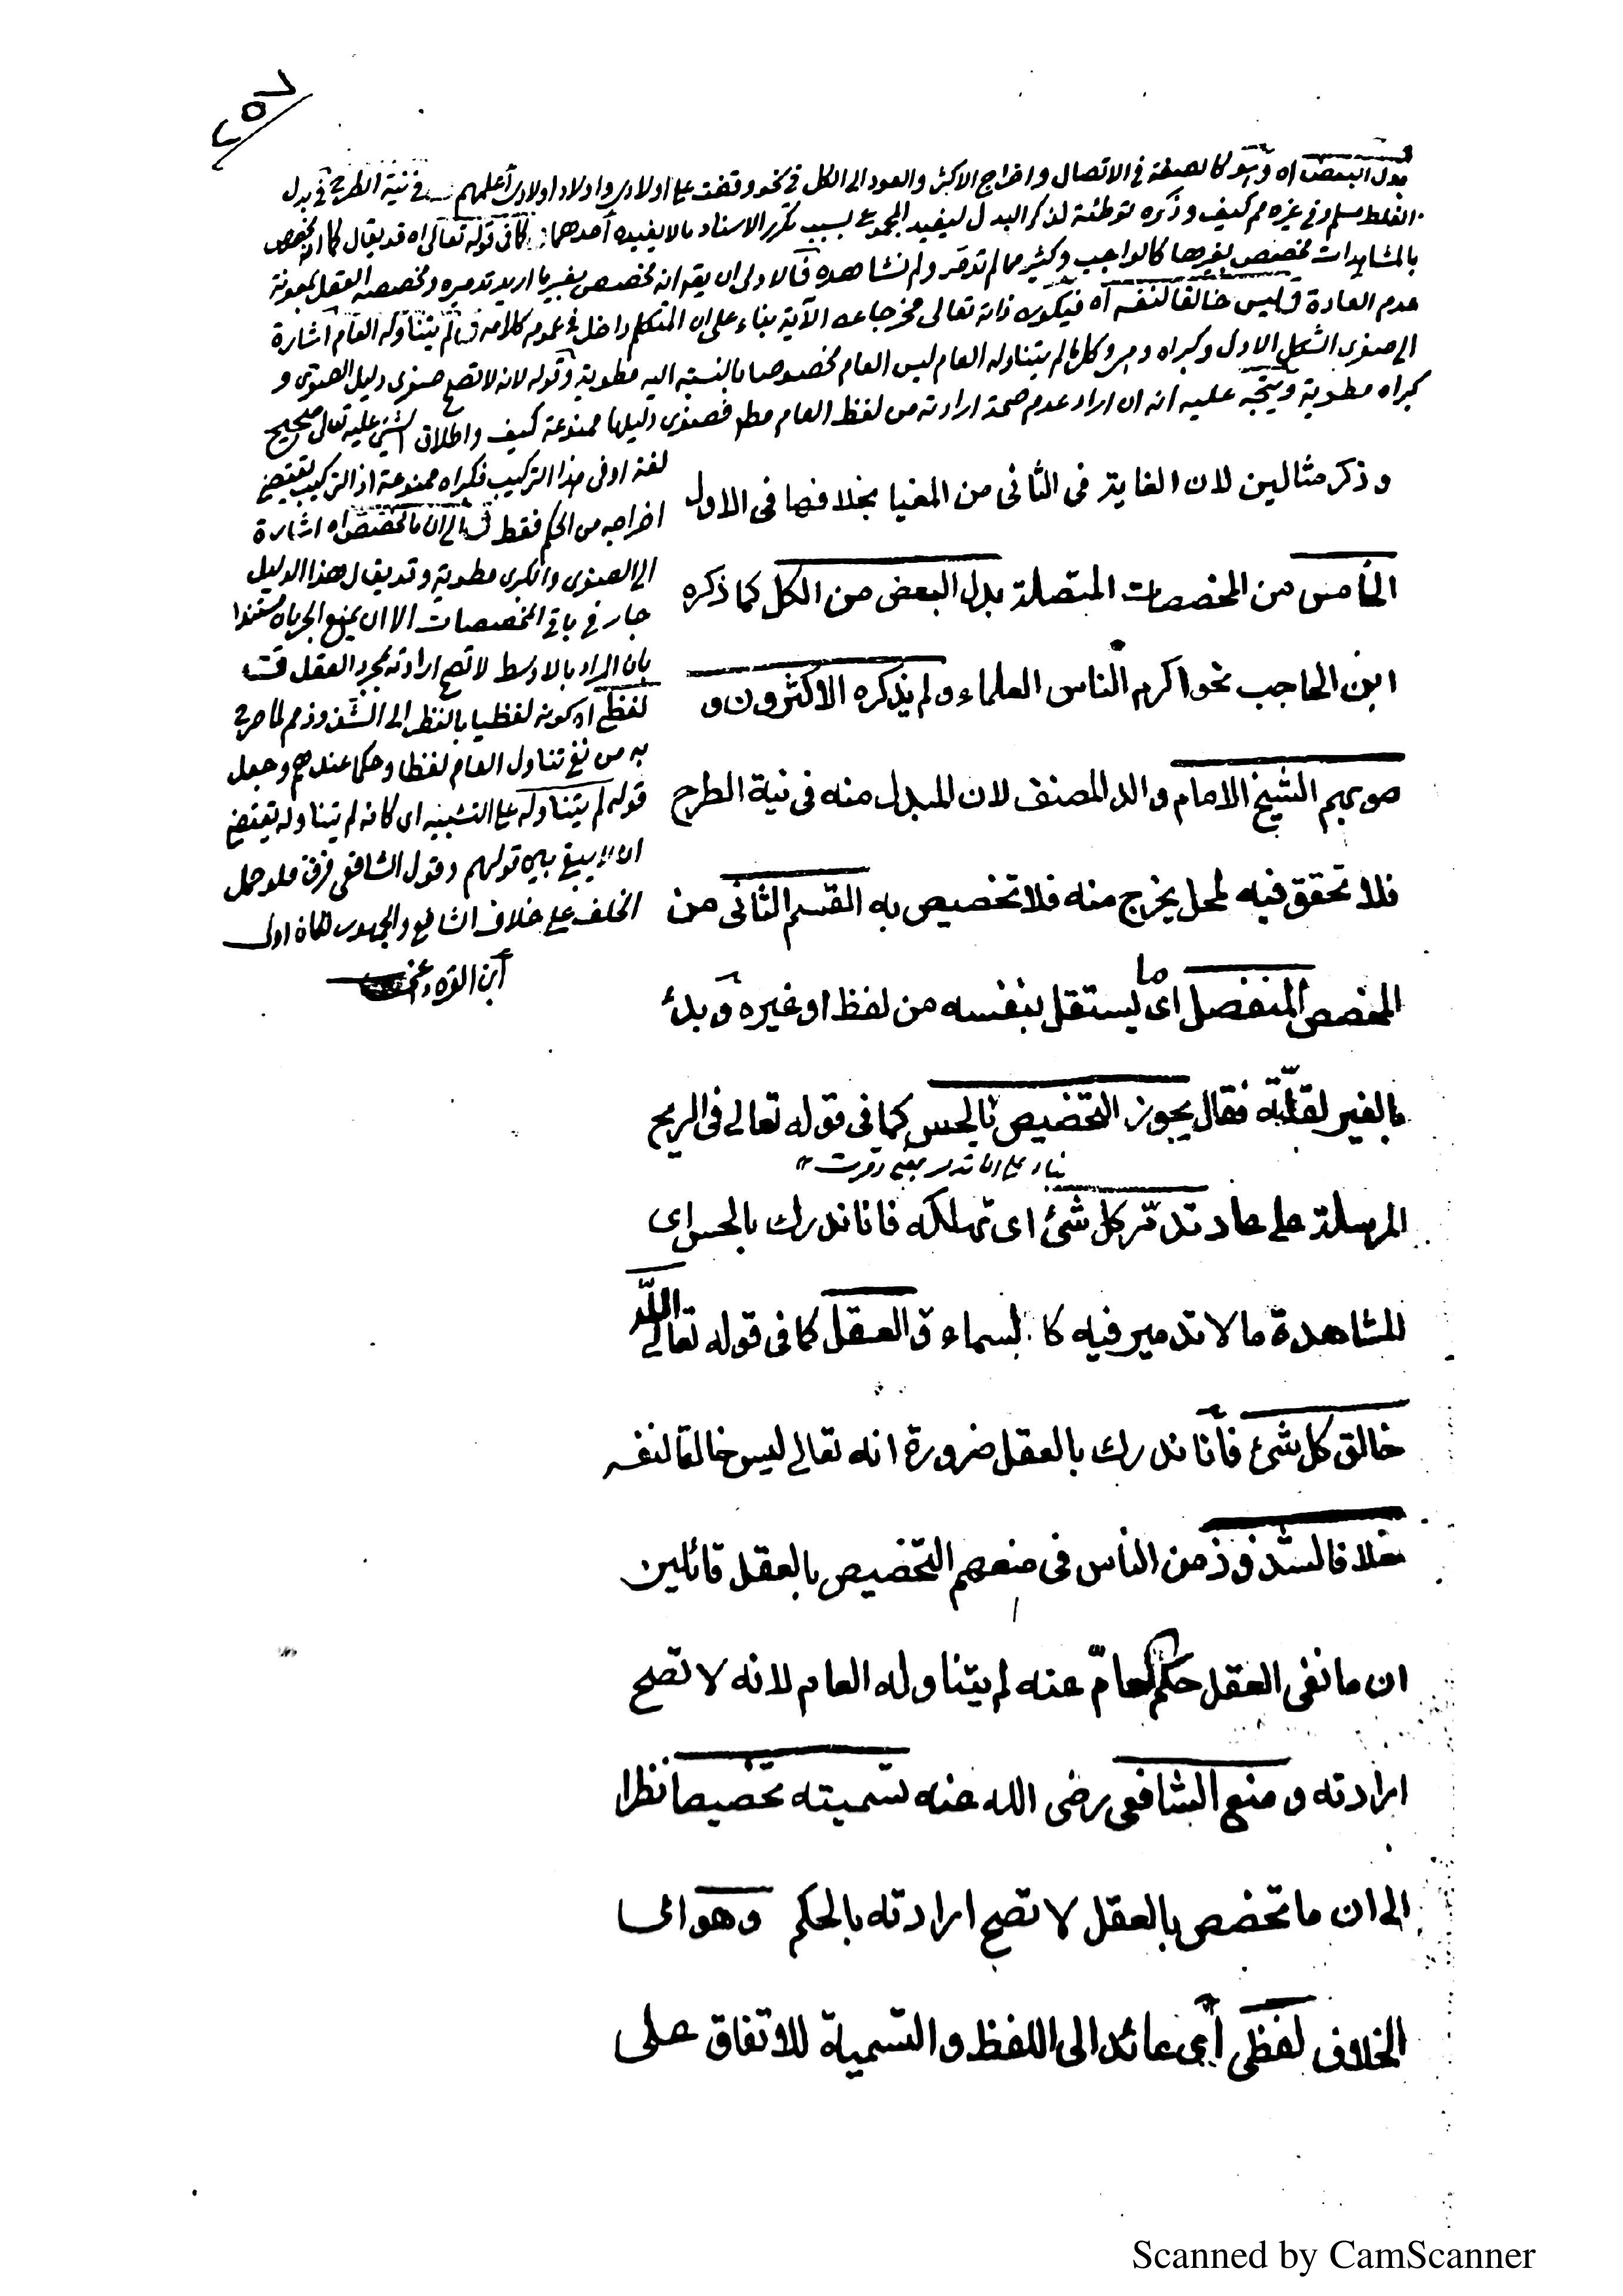 ٢٥٧
بدل البعض اه وهو كالصفة في الاتصال واخراج الاكثر والعود الى الكل في نحو وقفت على اولادي واولاد اولادي أعلمهم في نية الطرح في بدل
الغلط مسلم وفي غيره مم كيف وذكره توطئة لذكر البدل ليفيد المجموع بسبب تكرر الاسناد ما لا يفيده أحدهما كما في قوله تعالى اه قد يقال كما انه مخصص
بالمشاهدات مخصص بغيرها كالواجب وكثير مما لم تدمّر ولم نشاهده فالاولى ان يقم انه مخصص بغير ما اريد تدميره ومخصصه العقل بمعونة
عدم العادة ق ليس خالقا لنفسه اه فيكون ذاته تعالى مخرجا عن الآية بناء على ان المتكلم داخل في عموم كلامه لم يتناوله العام اشارة
الى صغرى الشكل الاول وكبراه وهي وكل ما لم يتناوله العام ليس العام مخصوصا بالنسبة اليه مطوية وقوله لانه لا تصح صغرى دليل الصغرى و
كبراه مطوية ويتجه عليه انه ان اراد عدم صحة ارادته من لفظ العام مطلقا فصغرى دليلها ممنوعة كيف واطلاق الشيء عليه تعالى صحيح
لغة او في هذا التركيب فكبراه ممنوعة اذ التركيب يقتضي
اخراجه من الحكم فقط ق الى ان ما تخصص اه اشارة
الى الصغرى والكبرى مطوية وقد يقال هذا الدليل
جار في باقي المخصصات الا ان يمنع الجريان مستندا
بان المراد بالاوسط لا تصح ارادته بمجرد العقل
لفظي اه كونه لفظيا بالنظر الى الشذوذ مم لما صرح
به من نفي تناول العام لفظا وحكما عندهم وجعل
قوله لم يتناوله على التشبيه اى كانه لم يتناوله يقتضي
ان لا يبقى بين قولهم وقول الشافعي فرق فلو حمل
الخلف على خلاف الشافعي والجمهور لكان اولى
ابن القره
وذكر مثالين لان الغاية فى الثانى من المغيا بخلافها فى الاول
الخامس من المخصصات المتصلة بدل البعض من الكل كما ذكره
ابن الحاجب نحو اكرم الناس العلماء ولم يذكره الاكثرون و
صوبهم الشيخ الامام والد المصنف لان المبدل منه فى نية الطرح
فلا تحقق فيه لمحل يخرج منه فلا تخصيص به القسم الثانى من
المخصص المنفصل اى ما يستقل بنفسه من لفظ او غيره وبدئ
بالغير لقلّته فقال يجوز التخصيص بالحس كما فى قوله تعالى فى الريح
المرسلة على عاد تدمّر كل شئ اى تهلكه فانا ندرك بالحس اى
المشاهدة ما لا تدمير فيه كالسماء والعقل كما فى قوله تعالى اللّٰه
خالق كل شئ فأنا ندرك بالعقل ضرورة انه تعالى ليس خالقا لنفسه
خلافا لشذوذ من الناس فى منعهم التخصيص بالعقل قائلين
ان ما نفى العقل حكم العامّ عنه لم يتناوله العام لانه لا تصح
ارادته ومنع الشافعى رضى الله عنه تسميته تخصيصا نظرا
الى ان ما تخصص بالعقل لا تصح ارادته بالحكم وهو اى
الخلاف لفظى أى عائد الى اللفظ والتسمية للاتفاق على
Scanned by CamScanner